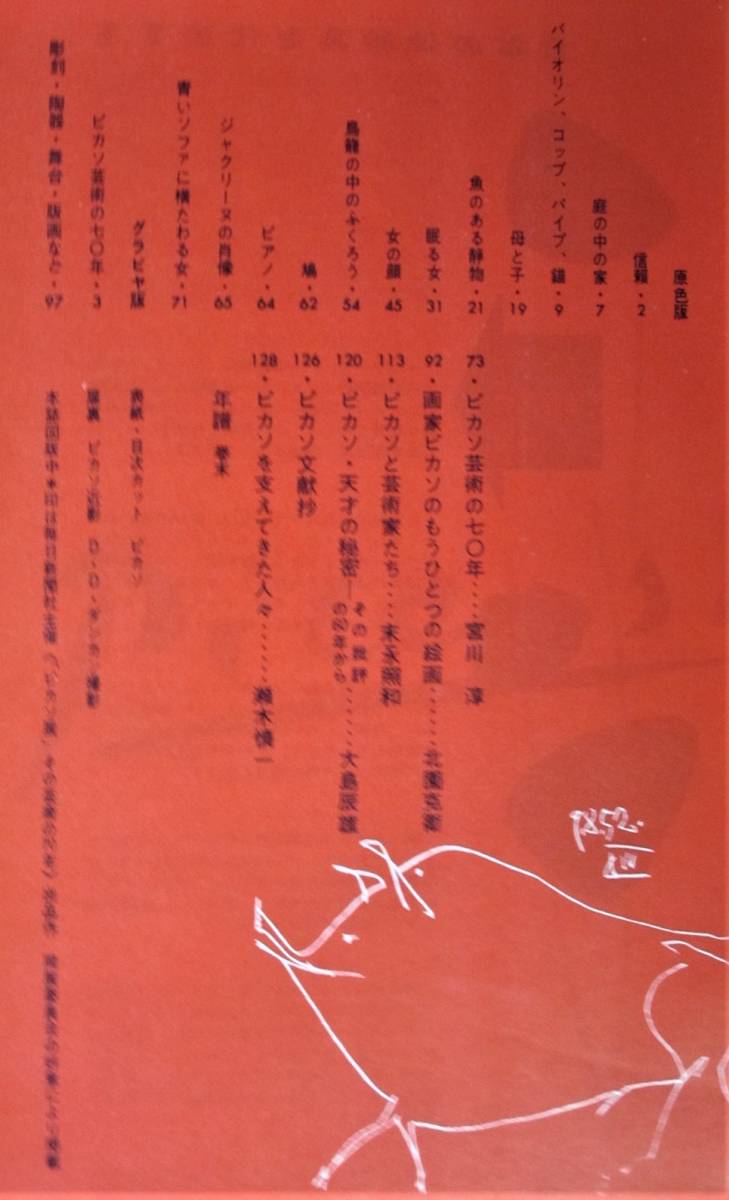 原色版
信頼・2
庭の中の家・7
バイオリン、コップ、パイプ、錨・9
母と子・19
魚のある静物・21
眠る女・31
女の顔・45
鳥籠の中のふくろう・54
鳩・62
ピアノ・64
ジャクリーヌの肖像・65
青いソファに横たわる女・71
グラビヤ版
ピカソ芸術の七〇年・3
彫刻・陶器・舞台・版画など・97
73・ピカソ芸術の七〇年……宮川 淳
92・画家ピカソのもうひとつの絵画……北園克衛
113・ピカソと芸術家たち……末永照和
120・ピカソ・天才の秘密―その批評の60年から……大島辰雄
126・ピカソ文献抄
128・ピカソを支えてきた人々……瀬木慎一
年譜 巻末
表紙・目次カット ピカソ
扉裏 ピカソ近影 D・D・ダンカン撮影
本誌図版中*印は毎日新聞社主催